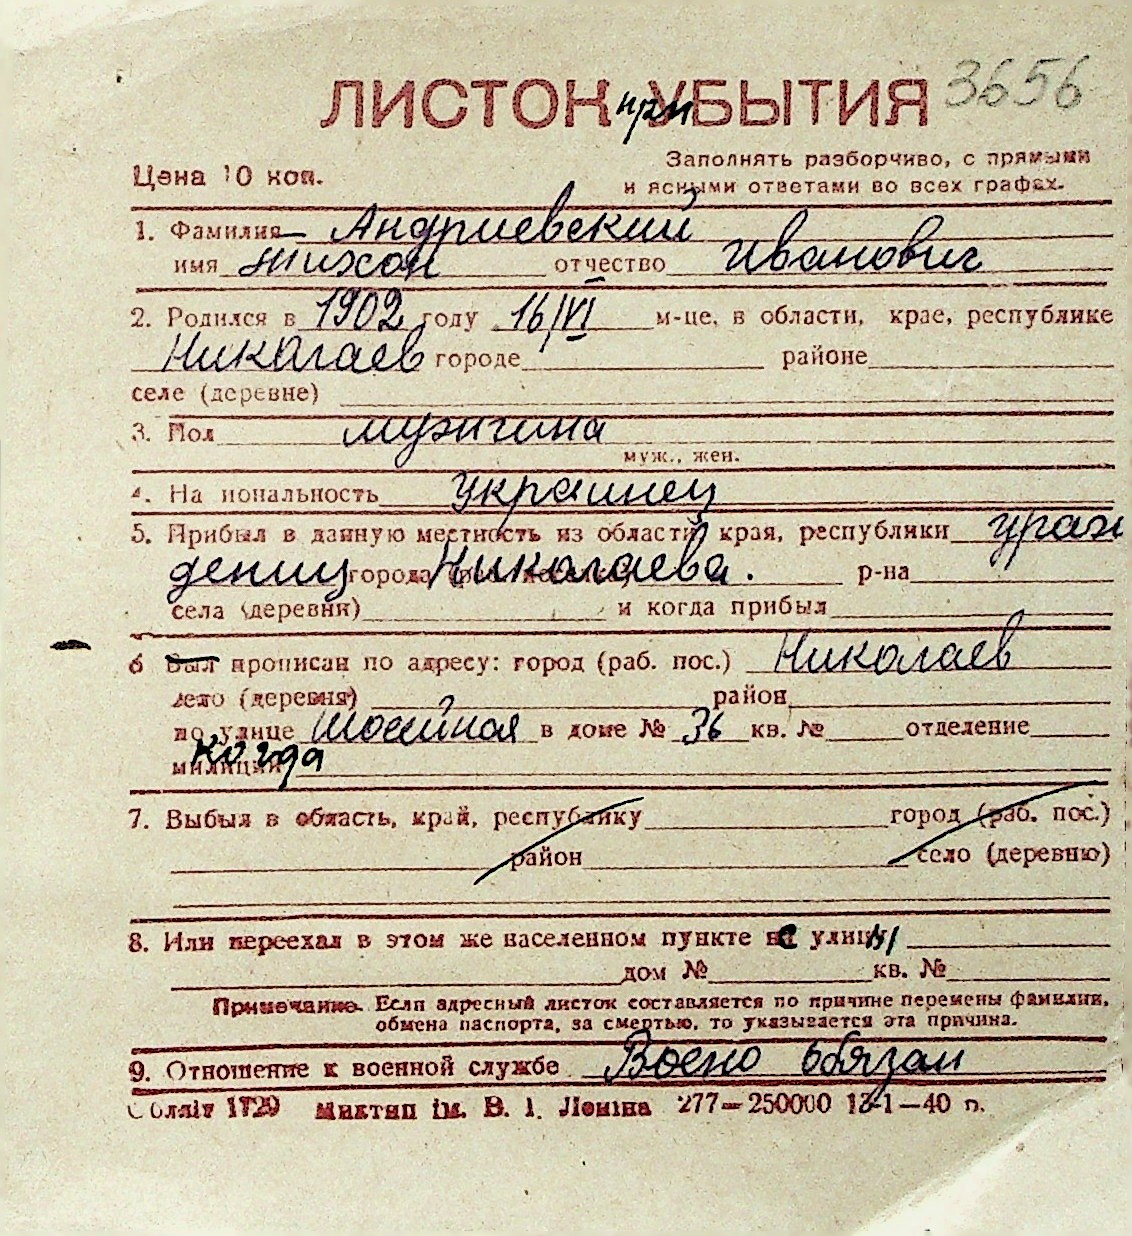 ЛИСТОК при УБЫТИЯ 3656
Цена 10 коп.
Заполнять разборчиво, с прямыми
и ясными ответами во всех графах.
1. Фамилия Андриевский
имя тихон отчество Иванович
2. Родился в 1902 году 16/VI м-це, в области, крае, республике
Николаев городе районе
селе (деревне)
3. Пол мужчина
муж., жен.
4. На иональность украинец
5. Прибыл в данную местность из области края, республики урож
дениц города Николаева. р-на
села (деревни) и когда прибыл
6 Был прописан по адресу: город (раб. пос.) Николаев
село (деревня) район
по улице Шосейная в доме № 36 кв. № отделение
милиции когда
7. Выбыл в область, край, республику город (раб. пос.)
район село (деревню)
8. Или переехал в этом же населенном пункте с улицы
дом № кв. №
Примечание. Если адресный листок составляется по причине перемены фамилии,
обмена паспорта, за смертью, то указывается эта причина.
9. Отношение к военной службе Воено обязан
Обллiт 1Т29 Миктип iм. В. I. Ленiна 277—250000 13-1—40 р.